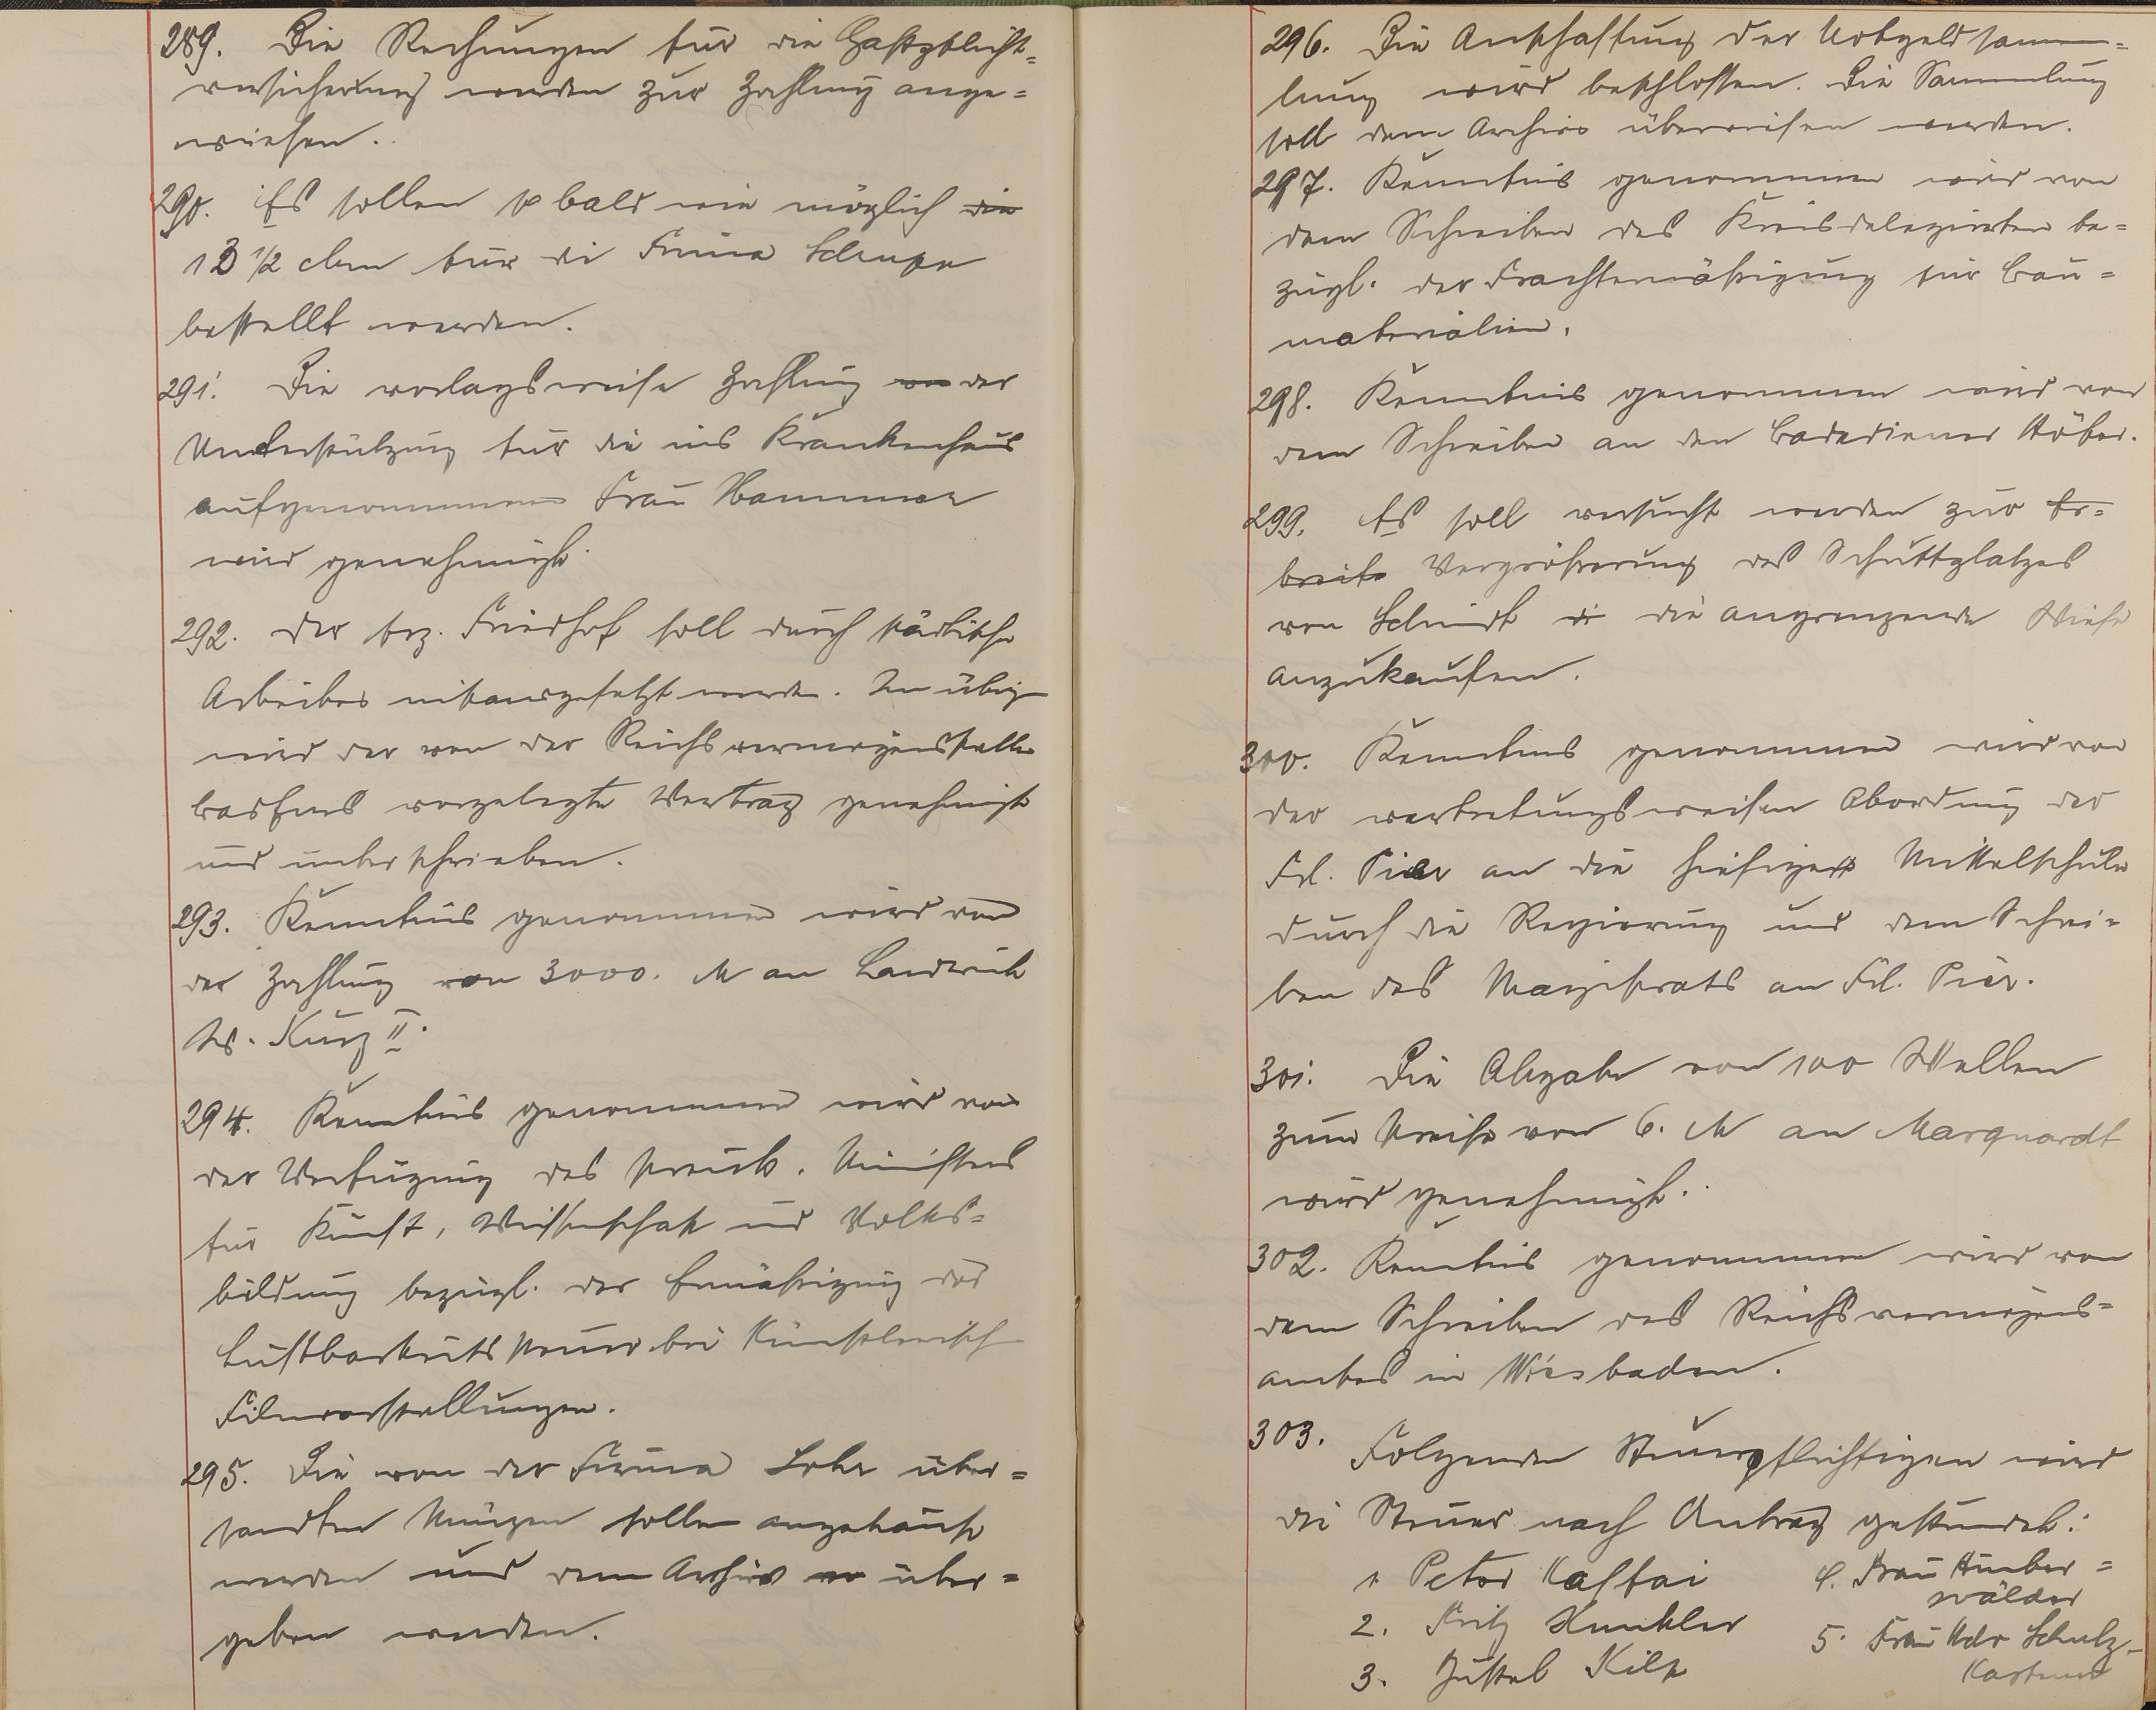 289. Die Rechnungen für die Haftpflicht=
versicherung werden zur Zahlung ange=
wiesen.
290. Es sollen so bald wie möglich die
13 1/2 cbm für die Firma
bestellt werden.
291. Die vorlagsweise Zahlung von der
Unterstützung für die ins Krankenhaus
aufgenommene Frau Hammer
wird genehmigt.
292. Der frz. Friedhof soll durch städtische
Arbeiter instandgesetzt werden. Im übrigen
wird der von der Reichsvermögensstelle
vorgelegte Vertrag genehmigt
und unterschrieben.
293. Kenntnis genommen wird von
der Zahlung von 3000. M an Landwirt
Kurz II.
294. Kenntnis genommen wird von
der Verfügung des preuß. Ministers
für Kunst, Wissenschaft und Volks=
bildung bezügl. der Ermäßigung der
Lustbarkeitssteuer bei künstlerisch
Filmvorstellungen.
295. Die von der Firma über=
sandten Münzen sollen angekauft
werden und dem Archiv über=
geben werden.
296. Die Anschaffung der Notgeldsamm=
lung wird beschlossen. Die Sammlung
soll dem Archiv überwiesen werden.
297. Kenntnis genommen wird von
dem Schreiben des Kreisdelegierten be=
zügl. der Frachtermäßigung für Bau=
materialien.
298. Kenntnis genommen wird von
dem Schreiben an den Badediener Höfer.
299. Es soll versucht werden zur Er=
breite Vergrößerung des Schuttplatzes
von Schmidt di die angrenzende Wiese
anzukaufen.
300. Kenntnis genommen wird von
der vertretungsweisen Abordnung der
Frl. Pier an die hiesige Mittelschule
durch die Regierung und dem Schrei=
ben des Magistrats an Frl. Pier.
301. Die Abgabe von 100 Wellen
zum Preise von 6. M an Marquardt
wird genehmigt.
302. Kenntnis genommen wird von
dem Schreiben des Reichsvermögens=
amtes in Wiesbaden.
303. Folgenden Steuerpflichtigen wird
die Steuer nach Antrag gestundet:
1 Peter Kastai
2. Fritz Kunkler
3. Gustel Kilp
4. Frau Hinter=
wälder
5. Frau Schulz-